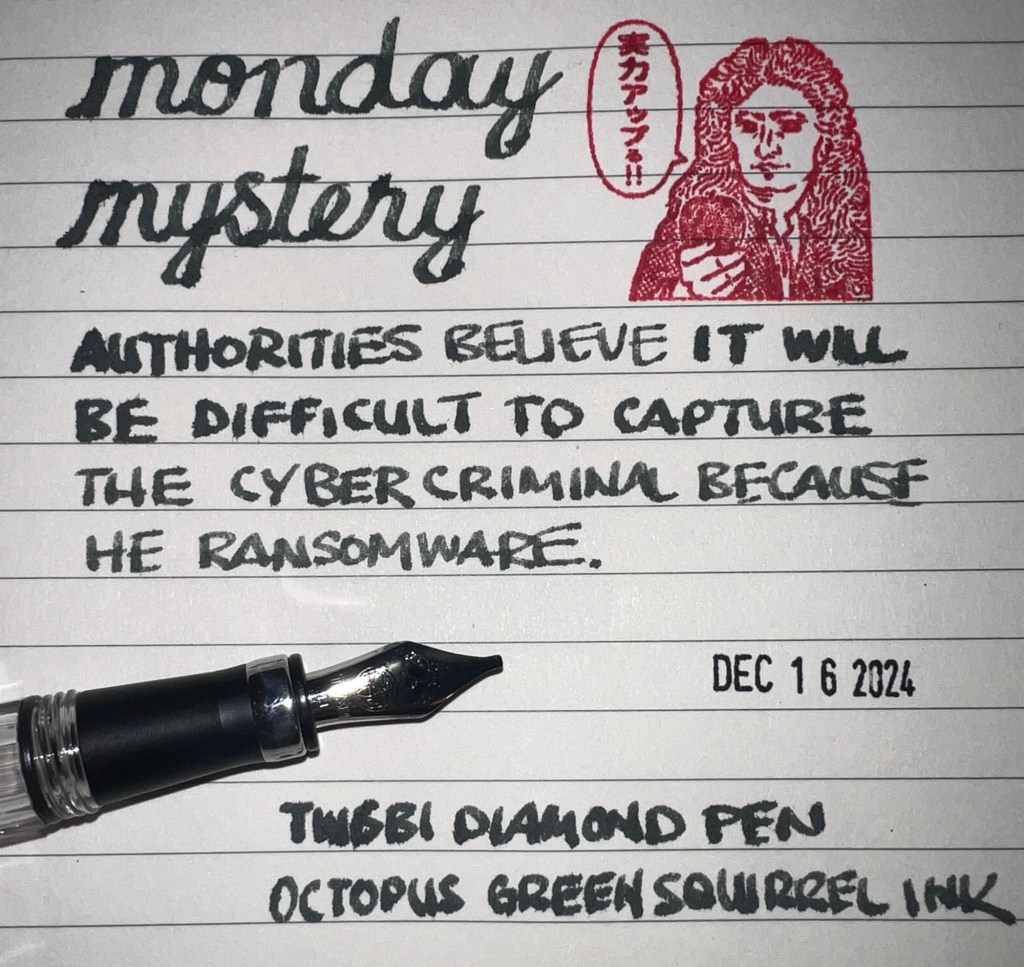 monday
mystery
実力アップる!!
AUTHORITIES BELIEVE IT WILL
BE DIFFICULT TO CAPTURE
THE CYBERCRIMINAL BECAUSE
HE RANSOMWARE.
DEC 16 2024
TWSBI DIAMOND PEN
OCTOPUS GREEN SQUIRREL INK